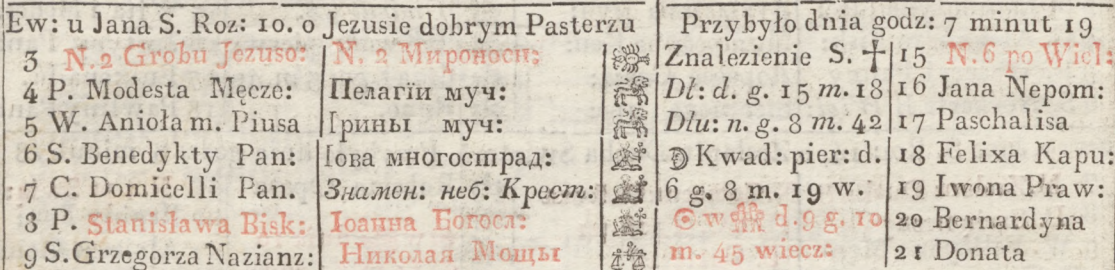 Ew: u Jana S. Roz: 10. o Jezusie dobrym Pasterzu Przybyło dnia godz: 7 minut 19
3 N. 2 Grobu Jezuso: N. 2 Мироноси: Znalezienie S. † 15 N. 6 po Wiel:
4 P. Modesta Męcze: Пелагїи муч: Dł: d. g. 15 m. 18 16 Jana Nepom:
5 W. Anioła m. Piusa Ірины муч: Dłu: n. g. 8 m. 42 17 Paschalisa
6 S. Benedykty Pan: Іова многострад: ☽ Kwad: pier: d. 18 Felixa Kapu:
7 C. Domicelli Pan. Знамен: неб: Крест: 6 g. 8 m. 19 w. 19 Iwona Praw:
8 P. Stanisława Bisk: Іоанна Богосл: ☉ w ♊ d. 9 g. 10 20 Bernardyna
9 S. Grzegorza Nazianz: Николая Мощы m. 45 wiecz: 21 Donata